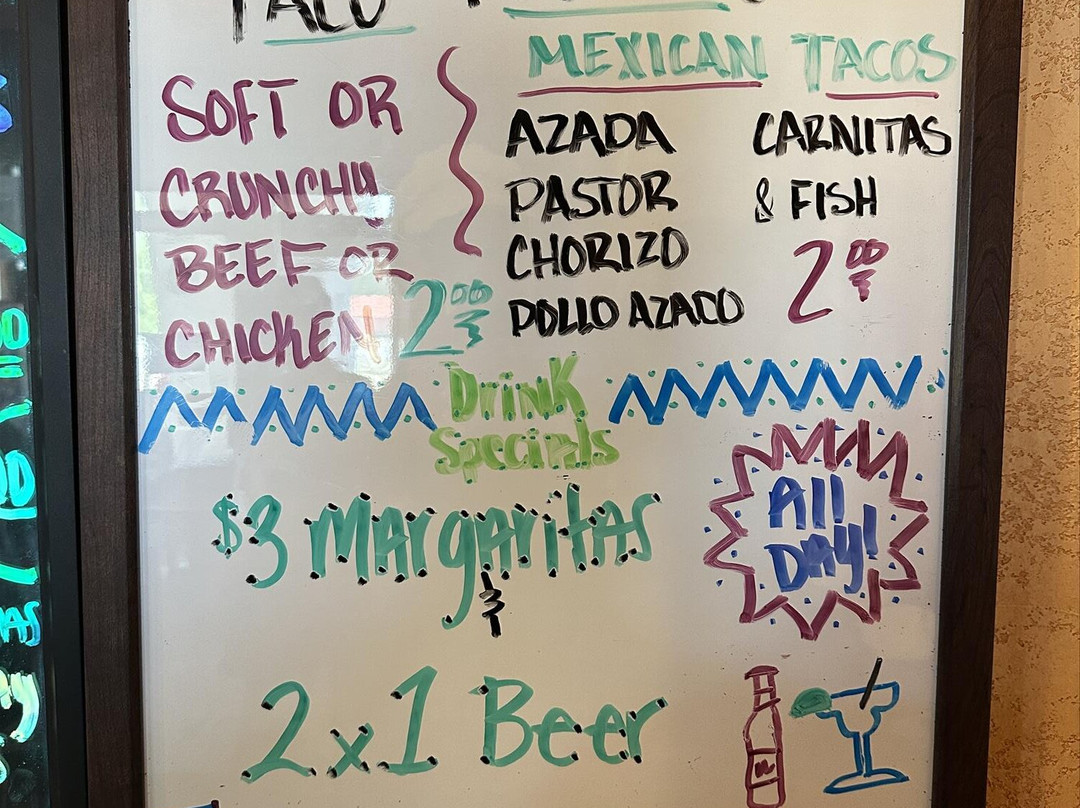 TACO
SOFT OR
CRUNCHY
BEEF OR
CHICKEN 2.00
MEXICAN TACOS
AZADA
PASTOR
CHORIZO
POLLO AZACO
CARNITAS
& FISH
2.00
Drink
Specials
$3 Margaritas
&
2x1 Beer
All
DAY!